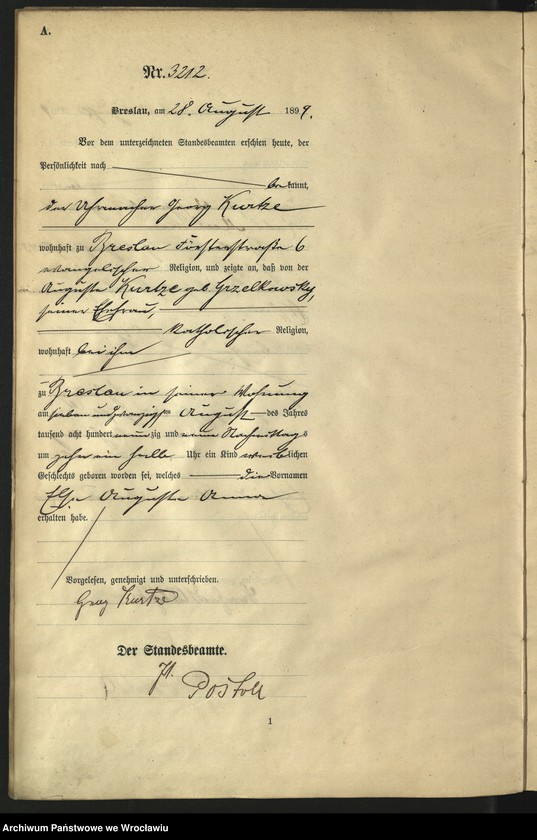 A.
Nr. 3212.
Breslau, am 28. August 1899.
Vor dem unterzeichneten Standesbeamten erschien heute, der
Persönlichkeit nach
bekannt,
der Uhrmacher Georg Kurtze
wohnhaft zu Breslau Försterstraße 6
evangelischer Religion, und zeigte an, daß von der
Auguste Kurtze geb. Grzelkowsky,
seiner Ehefrau,
katholischer Religion,
wohnhaft bei ihm
zu Breslau in seiner Wohnung
am sieben und zwanzigsten August des Jahres
tausend acht hundert neunzig und neun Nachmittags
um zehn ein halb Uhr ein Kind weiblichen
Geschlechts geboren worden sei, welches die Vornamen
Else Auguste Anna
erhalten habe.
Vorgelesen, genehmigt und unterschrieben.
Georg Kurtze
Der Standesbeamte.
1
Archiwum Państwowe we Wrocławiu